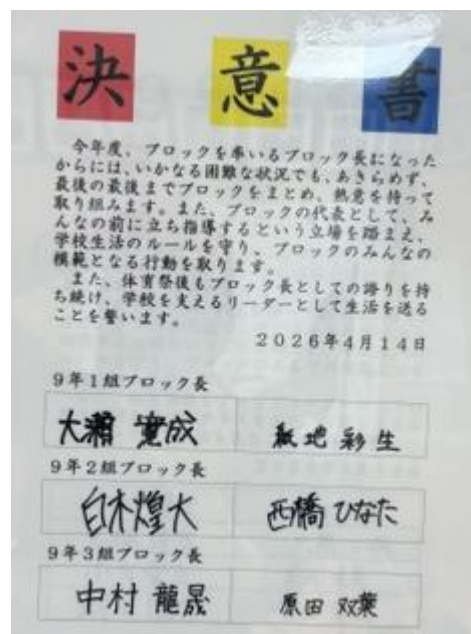 決意書
今年度、ブロックを率いるブロック長になった
からには、いかなる困難な状況でも、あきらめず、
最後の最後までブロックをまとめ、熱意を持って
取り組みます。また、ブロックの代表として、み
んなの前に立ち指導するという立場を踏まえ、
学校生活のルールを守り、ブロックのみんなの
模範となる行動を取ります。
また、体育祭後もブロック長としての誇りを持
ち続け、学校を支えるリーダーとして生活を送る
ことを誓います。
2026年4月14日
9年1組ブロック長
大瀬 寛成 地 彩生
9年2組ブロック長
白木煌大 西橋 ひなた
9年3組ブロック長
中村 龍晟 原田 双葉